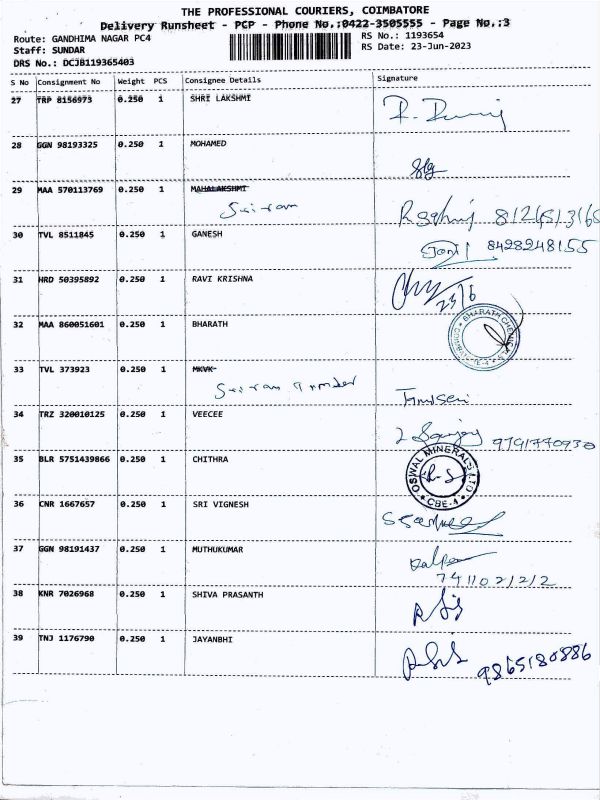 THE PROFESSIONAL COURIERS, COIMBATORE
Delivery Runsheet - PCP - Phone No.:0422-3505555 - Page No.:3
Route: GANDHIMA NAGAR PC4 RS No.: 1193654
Staff: SUNDAR RS Date: 23-Jun-2023
DRS No.: DCJB119365403
S No Consignment No Weight PCS Consignee Details Signature
27 TRP 8156973 0.250 1 SHRI LAKSHMI
28 GGN 98193325 0.250 1 MOHAMED
29 MAA 570113769 0.250 1 MAHALAKSHMI
Sriram
30 TVL 8511845 0.250 1 GANESH
8428248155
31 HRD 50395892 0.250 1 RAVI KRISHNA
23/6
32 MAA 860051601 0.250 1 BHARATH
33 TVL 373923 0.250 1 MKVK
Sriram
34 TRZ 320010125 0.250 1 VEECEE
9791770930
35 BLR 5751439866 0.250 1 CHITHRA
OSWAL MINERALS LTD
CBE-4
36 CNR 1667657 0.250 1 SRI VIGNESH
37 GGN 98191437 0.250 1 MUTHUKUMAR
7411021212
38 KNR 7026968 0.250 1 SHIVA PRASANTH
39 TNJ 1176790 0.250 1 JAYANBHI
9865180886